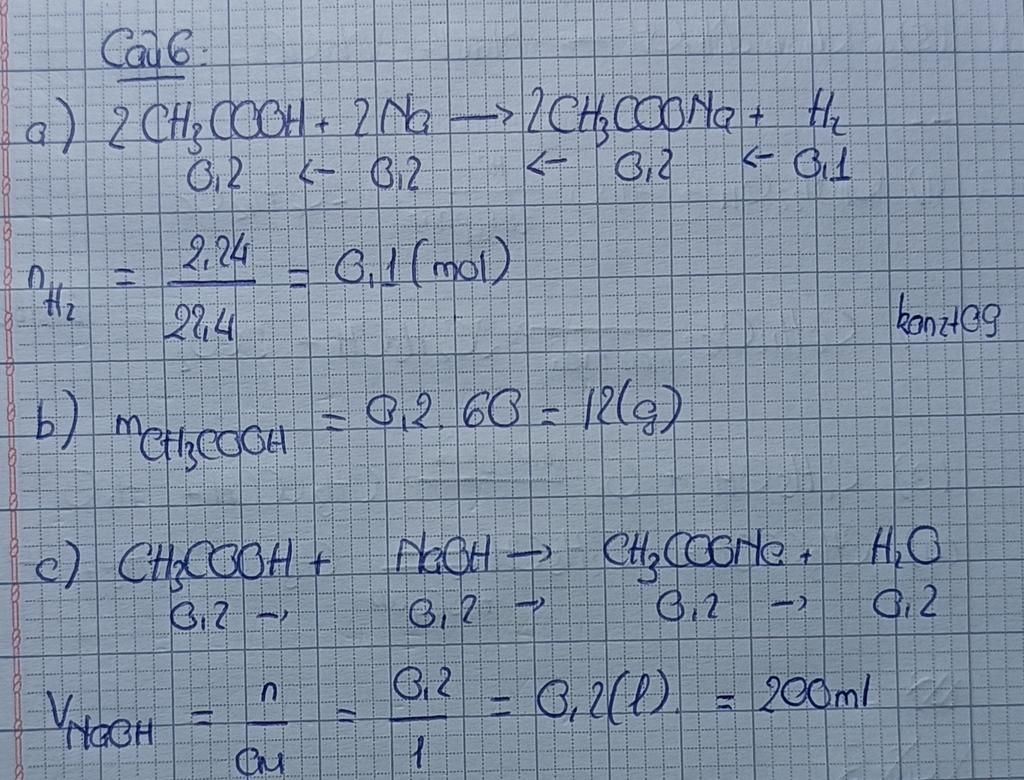 Câu 6:
a) 2CH₃COOH + 2Na → 2CH₃COONa + H₂
0,2 ← 0,2 ← 0,2 ← 0,1
n_H₂ = 2,24/22,4 = 0,1 (mol)
konzt09
b) m_CH₃COOH = 0,2 . 60 = 12 (g)
c) CH₃COOH + NaOH → CH₃COONa + H₂O
0,2 → 0,2 → 0,2 → 0,2
V_NaOH = n/CM = 0,2/1 = 0,2 (l) = 200ml